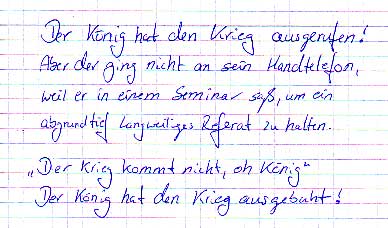 Der König hat den Krieg ausgerufen!
Aber der ging nicht an sein Handtelefon,
weil er in einem Seminar saß, um ein
abgrundtief langweiliges Referat zu halten.
„Der Krieg kommt nicht, oh König“
Der König hat den Krieg ausgebuht!